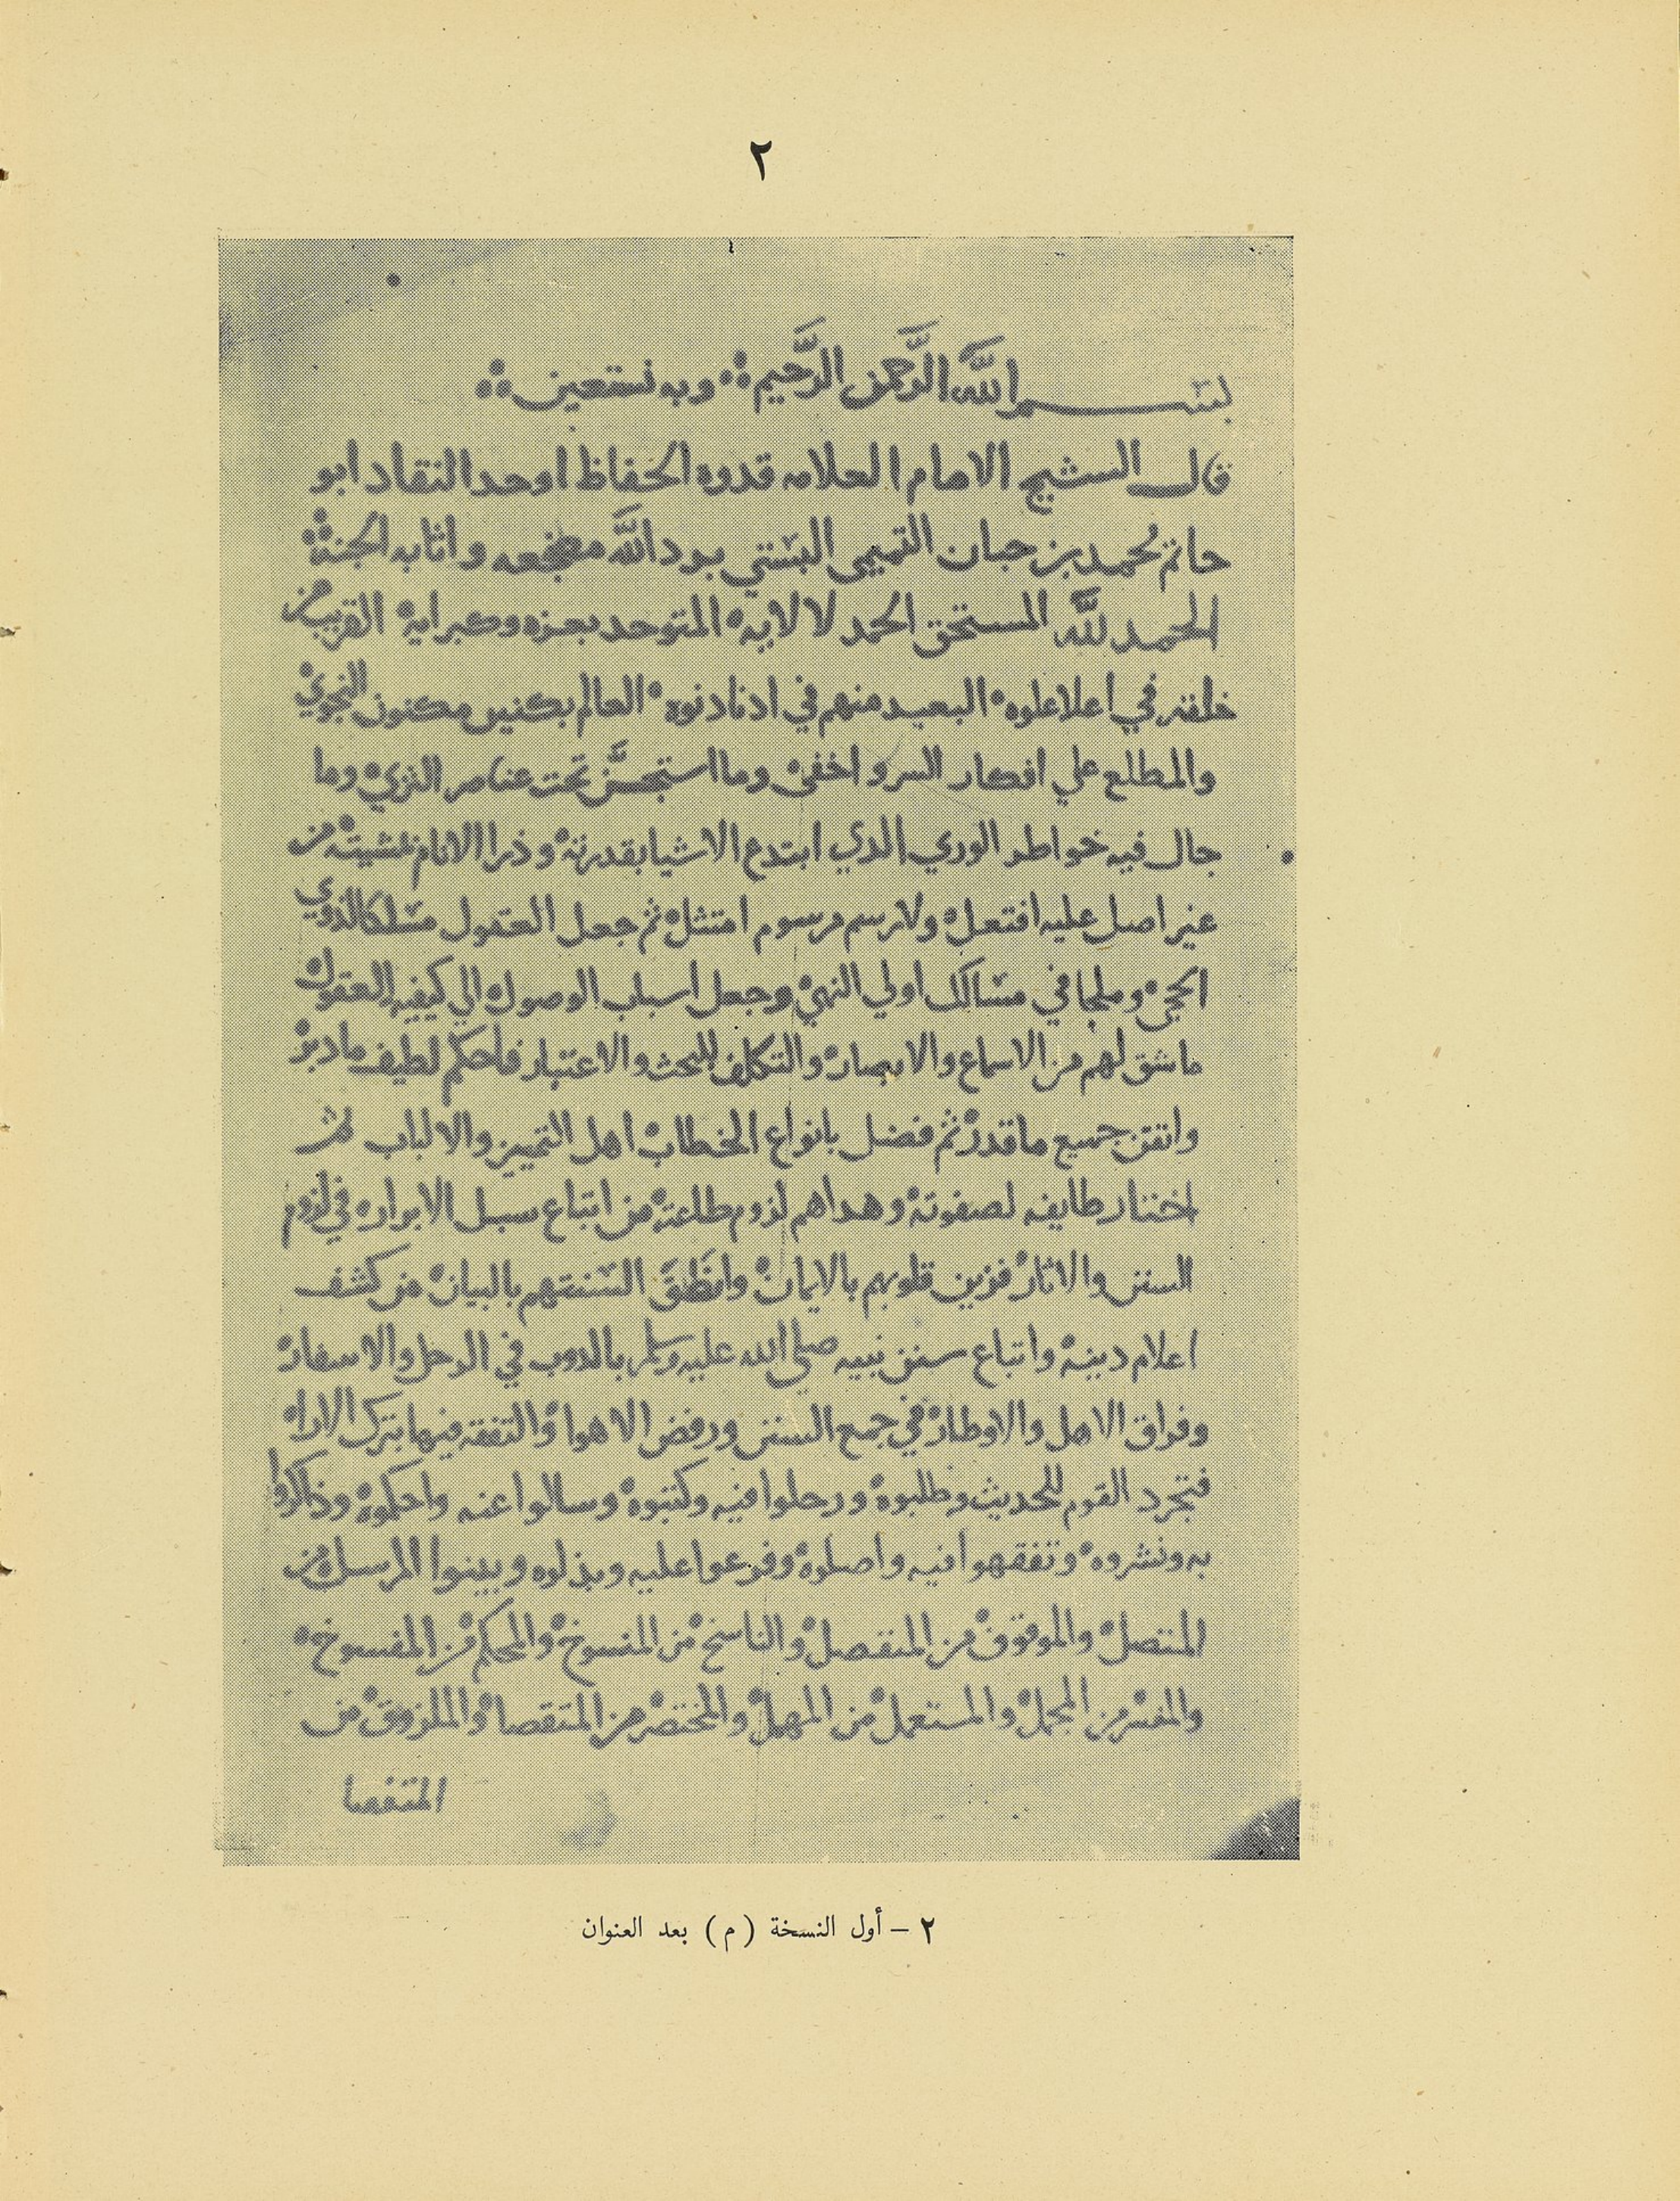 ٢
بسم الله الرَّحمن الرَّحيم ۞ وبه نستعين ۞
قال الشيخ الامام العلامه قدوه الحفاظ اوحد النقاد ابو
حاتم محمد بن حبان التميمي البستي برد الله مضجعه واثابه الجنة
الحمد لله المستحق الحمد لالايه المتوحد بعزه وكبرايه القريب من
خلقه في اعلا علوه البعيد منهم في ادنا دنوه العالم بكنين مكنون النجوي
والمطلع علي افكار السر واخفى وما استجنَّ تحت عناصر الثري وما
جال فيه خواطر الوري الذي ابتدع الاشيا بقدرته وذرا الانام بمشيته من
غير اصل عليه افتعل ولا رسم مرسوم امتثل ثم جعل العقول مسلكا لذوي
الحجى وملجا في مسالك اولي النهى وجعل اسباب الوصول الي كيفيه العقول
ما شق لهم من الاسماع والابصار والتكلف للبحث والاعتبار فاحكم لطيف ما دبر
واتقن جميع ما قدر ثم فضل بانواع الخطاب اهل التمييز والالباب ثم
اختار طايفه لصفوته وهداهم لزوم طاعته من اتباع سبل الابرار في لزوم
السنن والاثار فزين قلوبهم بالايمان وانطَقَ السنتهم بالبيان من كشف
اعلام دينه واتباع سنن نبيه صلي الله عليه وسلم بالدوب في الرحل والاسفار
وفراق الاهل والاوطار في جمع السنن ورفض الاهوا والتفقه فيها بترك الاراء
فتجرد القوم للحديث وطلبوه ورحلوا فيه وكتبوه وسالوا عنه واحكموه وذاكروا
به ونشروه وتفقهوا فيه واصلوه وفرعوا عليه وبذلوه وبينوا المرسل من
المتصل والموقوف من المنفصل والناسخ من المنسوخ والمحكم من المفسوخ
والمفسر من المجمل والمستعمل من المهمل والمختصر من المتقصا والملزوق من
المتفصا
٢ – أول النسخة (م) بعد العنوان